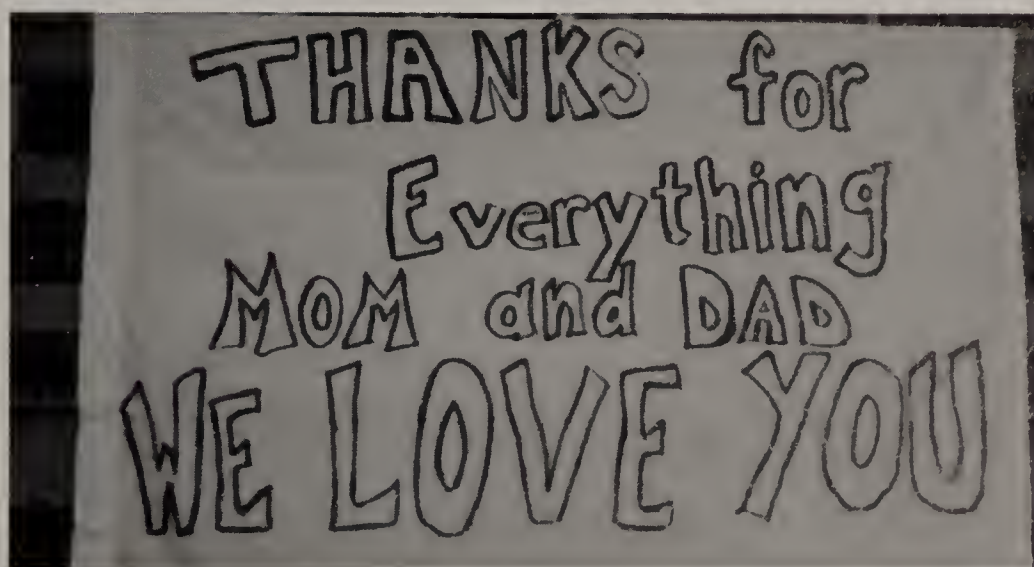 THANKS for
Everything
MOM and DAD
WE LOVE YOU